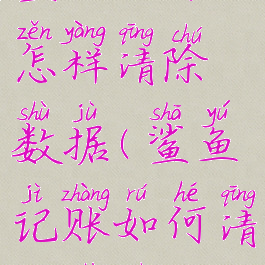 zěn yàng qīng chú
怎样清除
shù jù shā yú
数据(鲨鱼
jì zhàng rú hé qīng
记账如何清